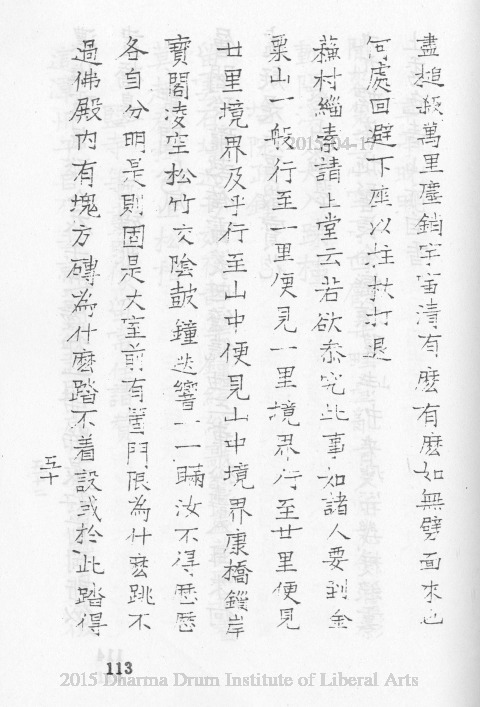 盡搥殺萬里塵銷宇宙清有麽有麽如無劈面來也
何處回避下座以拄杖打退
蘇村緇素請上堂云若欲叅究此事如諸人要到金
粟山一般行至一里便見一里境界行至廿里便見
廿里境界及乎行至山中便見山中境界康橋鏝岸
寶閣凌空松竹交陰鼓鐘迭響一一瞞汝不得歷歷
各自分明是則固是大室前有箇門限為什麽跳不
過佛殿內有塊方磚為什麽踏不着設或於此踏得
五十
113
2015-04-17
2015 Dharma Drum Institute of Liberal Arts